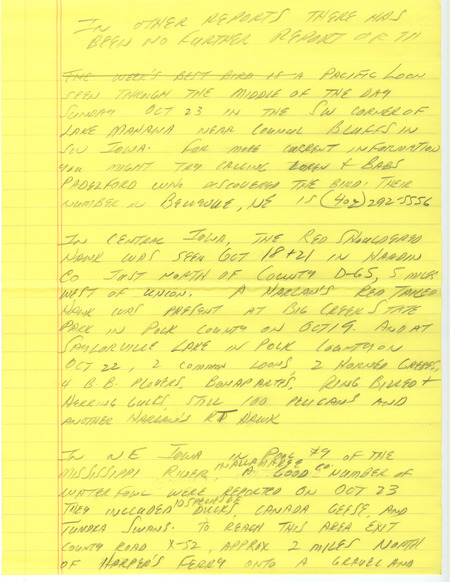 IN OTHER REPORTS THERE HAS
BEEN NO FURTHER REPORT OF
THE WEEK'S BEST BIRD IS A PACIFIC LOON
SEEN THROUGH THE MIDDLE OF THE DAY
SUNDAY OCT 23 IN THE SW CORNER OF
LAKE MANAWA NEAR COUNCIL BLUFFS IN
SW IOWA. FOR MORE CURRENT INFORMATION
YOU MIGHT TRY CALLING LOREN + BABS
PADELFORD WHO DISCOVERED THE BIRD. THEIR
NUMBER IN BELLEVUE, NE IS (402) 292-5556
IN CENTRAL IOWA, THE RED SHOULDERED
HAWK WAS SEEN OCT 18+21 IN HARDIN
CO JUST NORTH OF COUNTY D-65, 5 MILES
WEST OF UNION. A HARLAN'S RED TAILED
HAWK WAS PRESENT AT BIG CREEK STATE
PARK IN POLK COUNTY ON OCT 19. AND AT
SAYLORVILLE LAKE IN POLK COUNTY ON
OCT 22, 2 COMMON LOONS, 2 HORNED GREBES,
4 B.B. PLOVERS, BONAPARTES, RING BILLED +
HERRING GULLS, STILL 100 PELICANS AND
ANOTHER HARLAN'S RT HAWK
IN NE IOWA IN POOL #9 OF THE
MISSISSIPPI RIVER, IN ALLAMAKEE CO. A GOOD NUMBER OF
WATERFOWL WERE REPORTED ON OCT 23
THEY INCLUDED 10 SPECIES OF DUCKS, CANADA GEESE, AND
TUNDRA SWANS. TO REACH THIS AREA EXIT
COUNTY ROAD X-52, APPROX 2 MILES NORTH
OF HARPER'S FERRY ONTO A GRAVEL AND